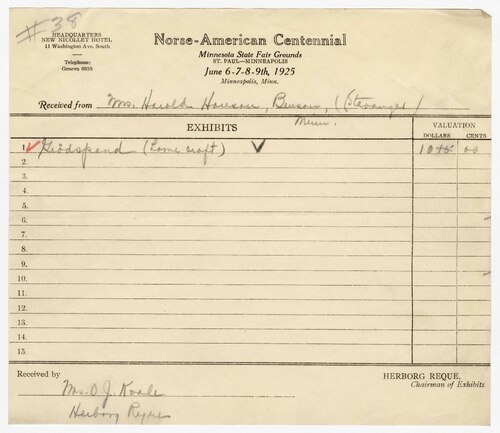 # 38
HEADQUARTERS
NEW NICOLLET HOTEL
11 Washington Ave. South
Telephone:
Geneva 8935
Norse-American Centennial
Minnesota State Fair Grounds
ST. PAUL—MINNEAPOLIS
June 6-7-8-9th, 1925
Minneapolis, Minn.
Received from Mrs. Harold Hanson, Benson, (Stavanger)
Minn.
EXHIBITS
VALUATION
DOLLARS CENTS
1. (home craft) 00
2.
3.
4.
5.
6.
7.
8.
9.
10.
11.
12.
13.
14.
15.
Received by
Mrs. O. J.
Herborg Reque
HERBORG REQUE,
Chairman of Exhibits